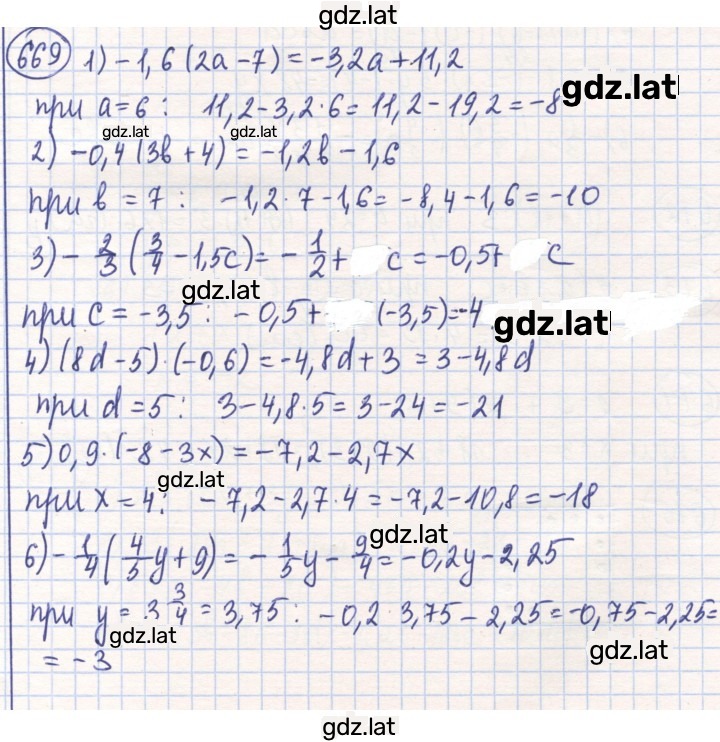 gdz.lat
669 1) -1,6 (2a - 7) = -3,2a + 11,2
gdz.lat
при a = 6 : 11,2 - 3,2 · 6 = 11,2 - 19,2 = -8
gdz.lat gdz.lat
2) -0,4 (3b + 4) = -1,2b - 1,6
при b = 7 : -1,2 · 7 - 1,6 = -8,4 - 1,6 = -10
3) - 2/3 (3/4 - 1,5c) = - 1/2 + c = -0,5 + c
gdz.lat
при c = -3,5 : -0,5 + (-3,5) = -4
gdz.lat
4) (8d - 5) · (-0,6) = -4,8d + 3 = 3 - 4,8d
при d = 5 : 3 - 4,8 · 5 = 3 - 24 = -21
5) 0,9 · (-8 - 3x) = -7,2 - 2,7x
gdz.lat
при x = 4 : -7,2 - 2,7 · 4 = -7,2 - 10,8 = -18
gdz.lat
6) - 1/4 (4/5 y + 9) = - 1/5 y - 9/4 = -0,2y - 2,25
при y = 3 3/4 = 3,75 : -0,2 · 3,75 - 2,25 = -0,75 - 2,25 =
gdz.lat gdz.lat
= -3
gdz.lat